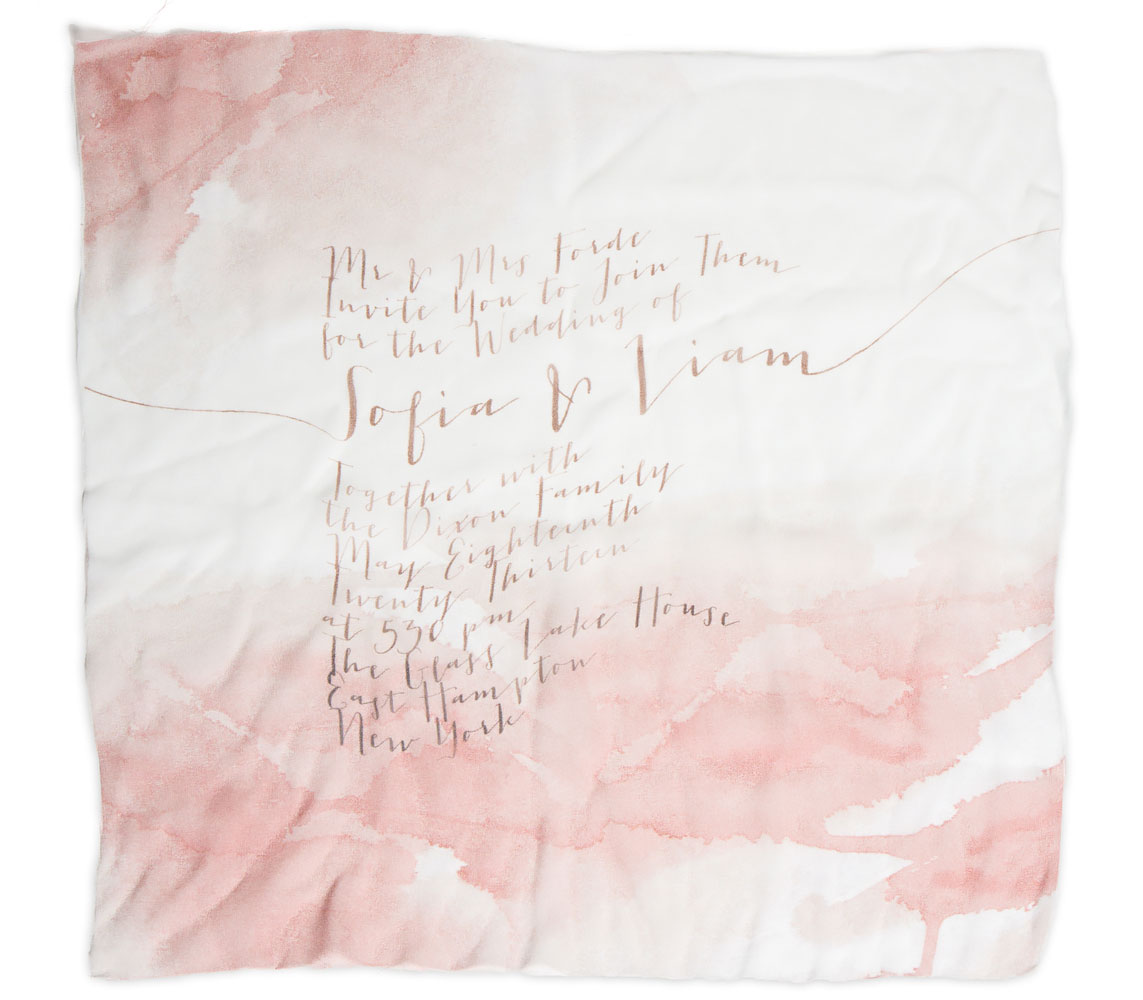 Mr & Mrs Forde
Invite You to Join Them
for the Wedding of
Sofia & Liam
Together with
the Dixon Family
May Eighteenth
Twenty Thirteen
at 530 pm
The Glass Lake House
East Hampton
New York